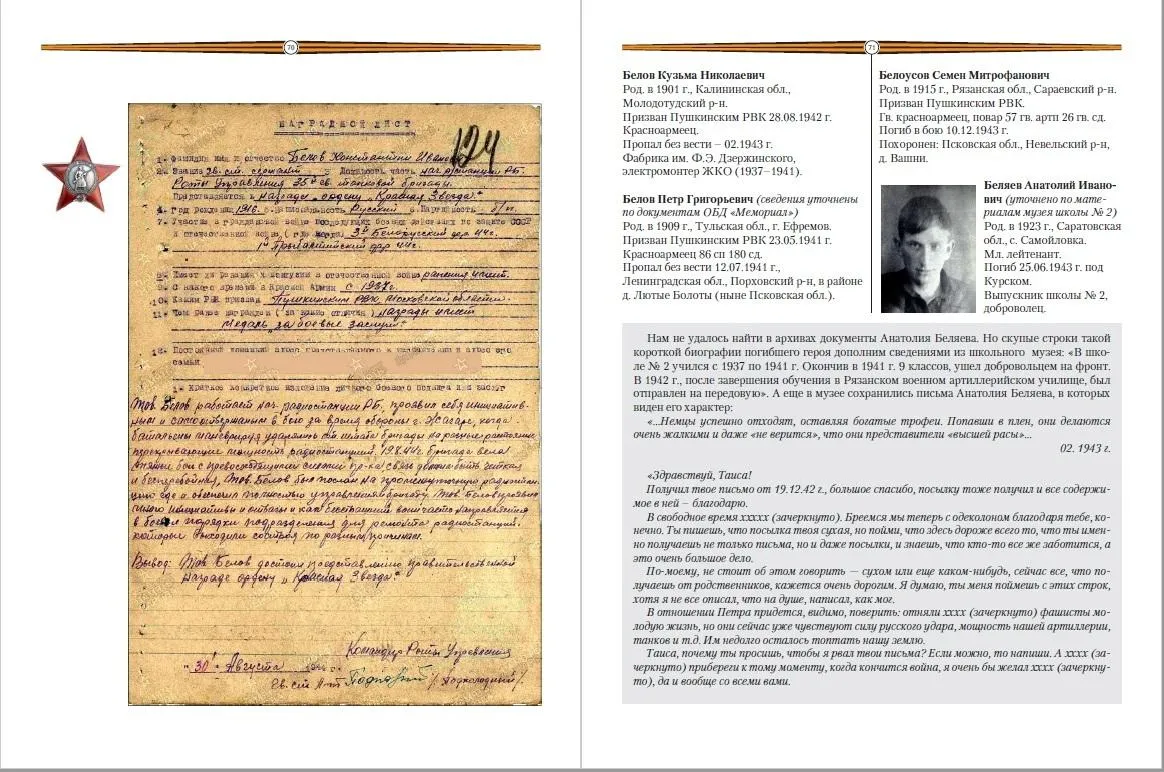 70
НАГРАДНОЙ ЛИСТ
124
1- Фамилия имя и отчество Белов Константин Иванович
2- Звание гв. ст. сержант 3 Должность часть нач. р/станции РБ.
Роты Управления 35 гв. танковой бригады.
Представляется к награде ордену "Красная Звезда"
4- Год рождения 1916 5- Национальность Русский 6- Партийность б/п
7- Участие в гражданской войне последующих боевых действиях по защите СССР
и отечественной войне (где когда) 3й Белорусский фр 44г.
1й Прибалтийский фр 44г.
8- Имеет ли ранения и контузии в отечественной войне ранения имеет.
9- С какого времени в Красной Армии с 1937г.
10- Каким РВК призван Пушкинским РВК, Московской области.
11- Чем ранее награжден (за какие отличия) награды имеет
медаль "За боевые заслуги"
12- Постоянный домашний адрес представляемого к награждению и адрес его
семьи
1- Краткое конкретное изложение личного боевого подвига или заслуг
Тов. Белов работает нач. радиостанции РБ, проявил себя инициатив-
ным и самоотверженным в бою за время обороны г. Жагаре, когда
батальоны маневрируя удалялись от штаба бригады на разные расстояния
перекрывающие мощность радиостанций. 19.8.44г. бригада вела
бои с превосходящими силами пр-ка связь должна быть четкая
и бесперебойная, Тов. Белов был послан на промежуточную радиостан-
цию где и обеспечил полностью управление бригаде. Тов. Белов проявил
много инициативы и отваги и как бесстрашный воин часто направляется
в боевые порядки подразделений для ремонта радиостанций,
которые выходили со строя по разным причинам.
Вывод: Тов. Белов достоин представлению правительственной
награде ордену "Красная Звезда"
Командир Роты Управления
"30" Августа 1944 г.
Гв. ст. л-т /Подколодный/
71
Белов Кузьма Николаевич
Род. в 1901 г., Калининская обл.,
Молодотудский р-н.
Призван Пушкинским РВК 28.08.1942 г.
Красноармеец.
Пропал без вести – 02.1943 г.
Фабрика им. Ф.Э. Дзержинского,
электромонтер ЖКО (1937–1941).
Белов Петр Григорьевич (сведения уточнены
по документам ОБД «Мемориал»)
Род. в 1909 г., Тульская обл., г. Ефремов.
Призван Пушкинским РВК 23.05.1941 г.
Красноармеец 86 сп 180 сд.
Пропал без вести 12.07.1941 г.,
Ленинградская обл., Порховский р-н, в районе
д. Лютые Болоты (ныне Псковская обл.).
Белоусов Семен Митрофанович
Род. в 1915 г., Рязанская обл., Сараевский р-н.
Призван Пушкинским РВК.
Гв. красноармеец, повар 57 гв. артп 26 гв. сд.
Погиб в бою 10.12.1943 г.
Похоронен: Псковская обл., Невельский р-н,
д. Вашни.
Беляев Анатолий Ивано-
вич (уточнено по мате-
риалам музея школы № 2)
Род. в 1923 г., Саратовская
обл., с. Самойловка.
Мл. лейтенант.
Погиб 25.06.1943 г. под
Курском.
Выпускник школы № 2,
доброволец.
Нам не удалось найти в архивах документы Анатолия Беляева. Но скупые строки такой
короткой биографии погибшего героя дополним сведениями из школьного музея: «В шко-
ле № 2 учился с 1937 по 1941 г. Окончив в 1941 г. 9 классов, ушел добровольцем на фронт.
В 1942 г., после завершения обучения в Рязанском военном артиллерийском училище, был
отправлен на передовую». А еще в музее сохранились письма Анатолия Беляева, в которых
виден его характер:
«...Немцы успешно отходят, оставляя богатые трофеи. Попавши в плен, они делаются
очень жалкими и даже «не верится», что они представители «высшей расы»...
02. 1943 г.
«Здравствуй, Таиса!
Получил твое письмо от 19.12.42 г., большое спасибо, посылку тоже получил и все содержи-
мое в ней – благодарю.
В свободное время ххххх (зачеркнуто). Бреемся мы теперь с одеколоном благодаря тебе, ко-
нечно. Ты пишешь, что посылка твоя сухая, но пойми, что здесь дороже всего то, что ты имен-
но получаешь не только письма, но и даже посылки, и знаешь, что кто-то все же заботится, а
это очень большое дело.
По-моему, не стоит об этом говорить — сухом или еще каком-нибудь, сейчас все, что по-
лучаешь от родственников, кажется очень дорогим. Я думаю, ты меня поймешь с этих строк,
хотя я не все описал, что на душе, написал, как мог.
В отношении Петра придется, видимо, поверить: отняли хххх (зачеркнуто) фашисты мо-
лодую жизнь, но они сейчас уже чувствуют силу русского удара, мощность нашей артиллерии,
танков и т.д. Им недолго осталось топтать нашу землю.
Таиса, почему ты просишь, чтобы я рвал твои письма? Если можно, то напиши. А хххх (за-
черкнуто) прибереги к тому моменту, когда кончится война, я очень бы желал хххх (зачеркну-
то), да и вообще со всеми вами.